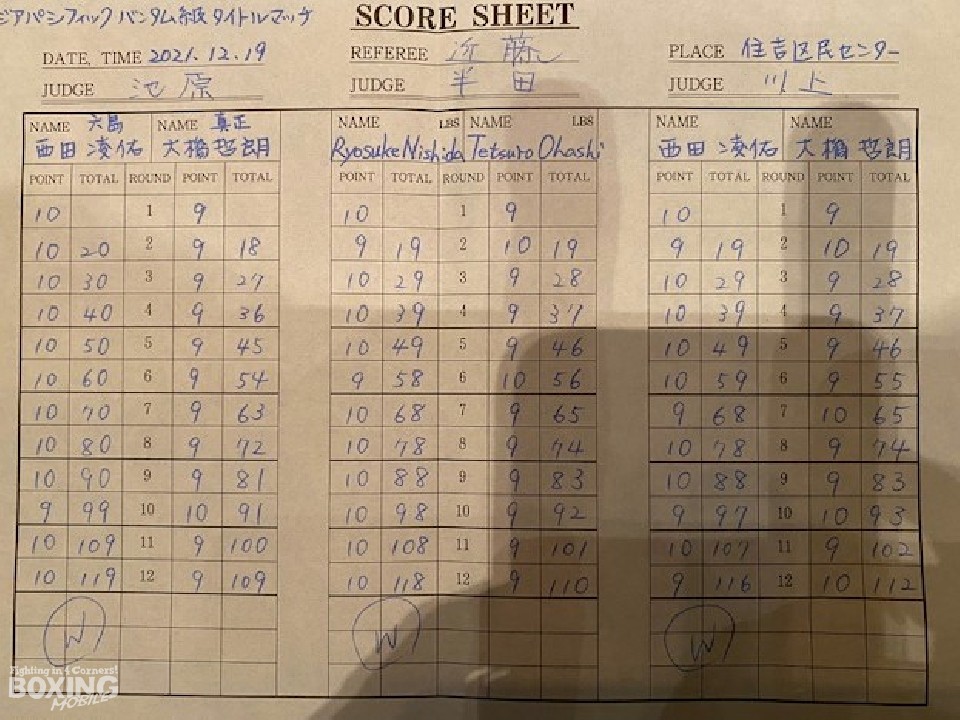 ジアパシフィック バンタム級 タイトルマッチ
SCORE SHEET
DATE, TIME 2021.12.19 REFEREE 近藤 PLACE 住吉区民センター
JUDGE 池原 JUDGE 半田 JUDGE 川上
NAME 六島 NAME 真正 NAME LBS NAME LBS NAME NAME
西田 凌佑 大橋哲朗 Ryosuke Nishida Tetsuro Ohashi 西田 凌佑 大橋 哲朗
POINT TOTAL ROUND POINT TOTAL POINT TOTAL ROUND POINT TOTAL POINT TOTAL ROUND POINT TOTAL
10 1 9 10 1 9 10 1 9
10 20 2 9 18 9 19 2 10 19 9 19 2 10 19
10 30 3 9 27 10 29 3 9 28 10 29 3 9 28
10 40 4 9 36 10 39 4 9 37 10 39 4 9 37
10 50 5 9 45 10 49 5 9 46 10 49 5 9 46
10 60 6 9 54 9 58 6 10 56 10 59 6 9 55
10 70 7 9 63 10 68 7 9 65 9 68 7 10 65
10 80 8 9 72 10 78 8 9 74 10 78 8 9 74
10 90 9 9 81 10 88 9 9 83 10 88 9 9 83
9 99 10 10 91 10 98 10 9 92 9 97 10 10 93
10 109 11 9 100 10 108 11 9 101 10 107 11 9 102
10 119 12 9 109 10 118 12 9 110 9 116 12 10 112
W W W
Fighting in 4 Corners!
BOXING
MOBILE